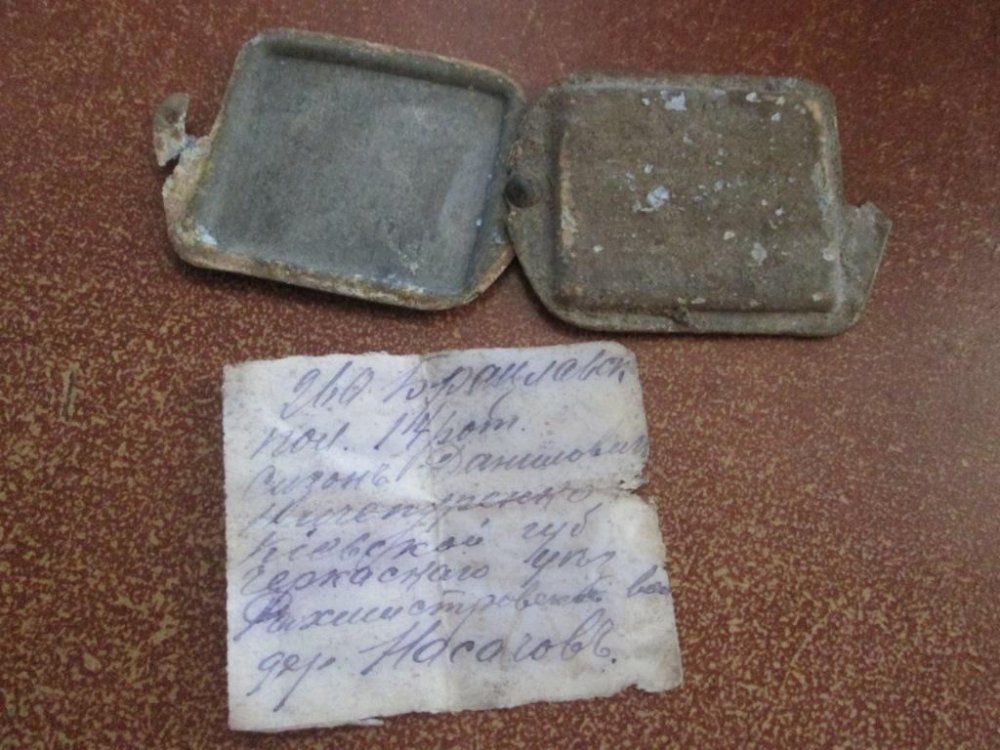 260. Брацлавск
пол. 14 рот.
Сизонъ Данилович

Кіевской губ
Черкаскаго уѣз
Рахмистровской вол
дер. Носачовъ.